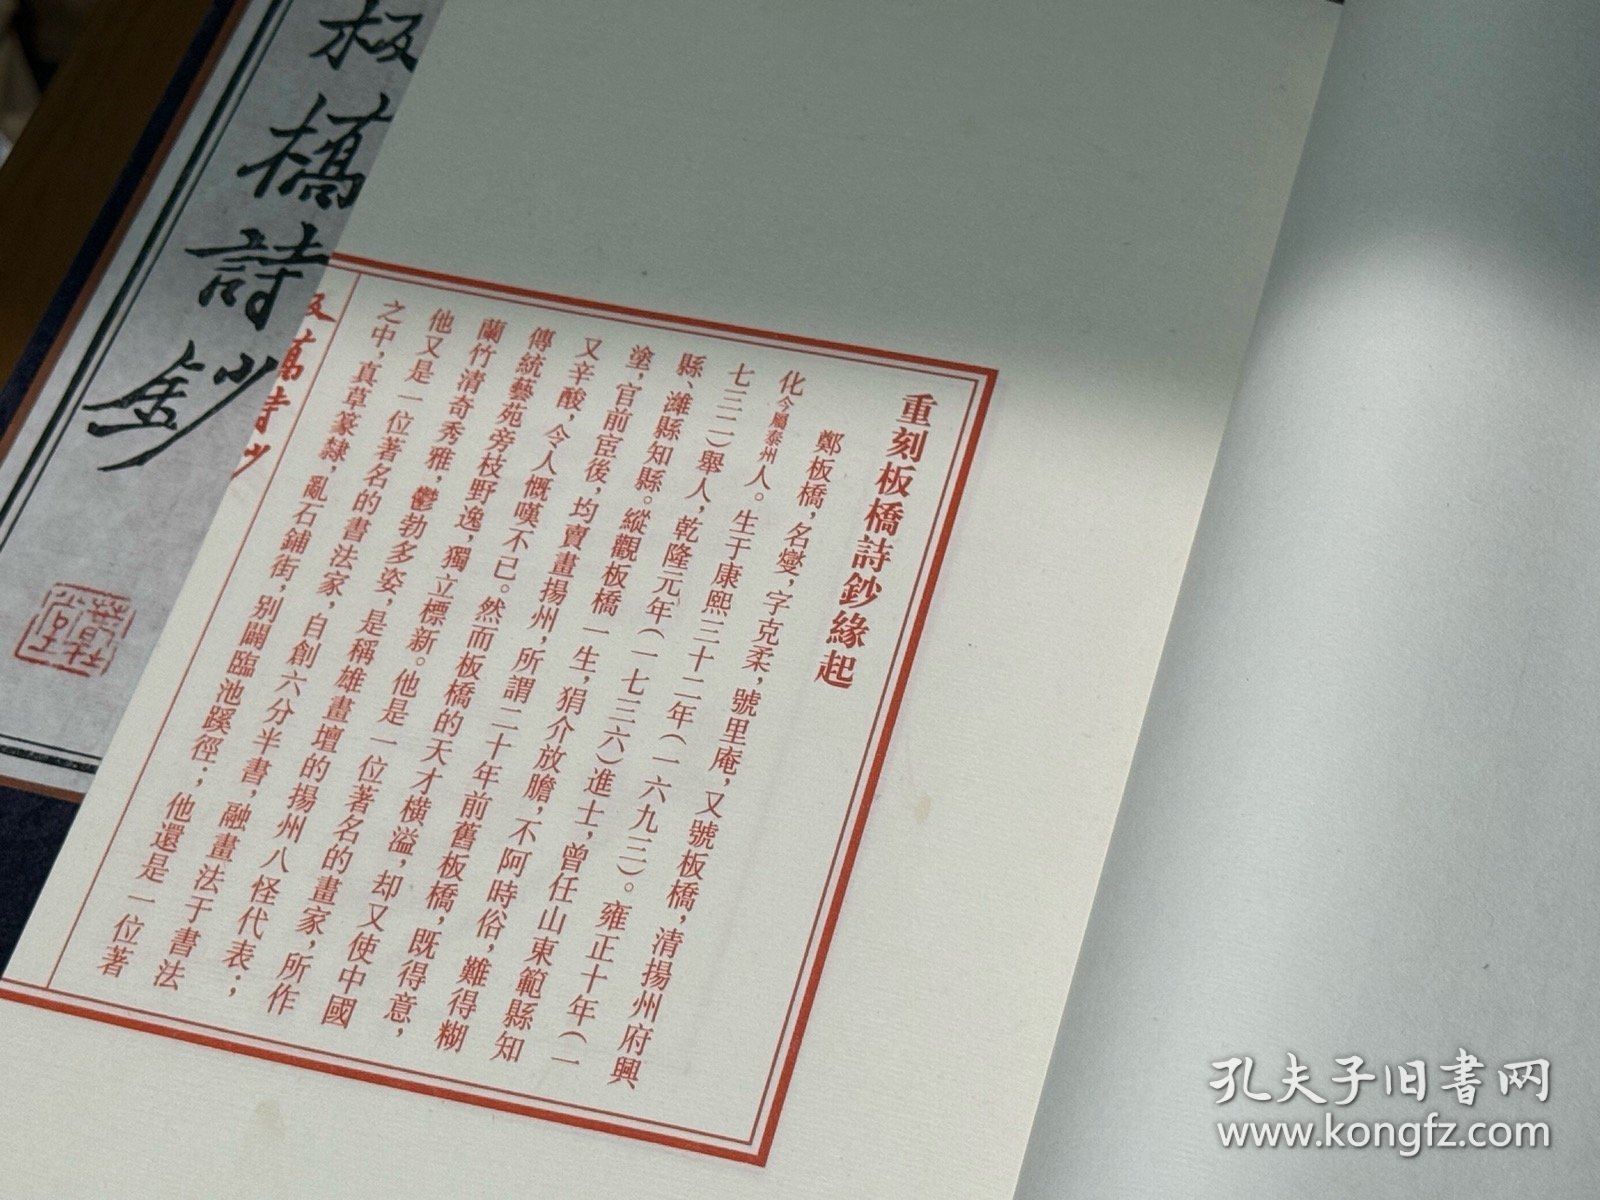 重刻板橋詩鈔緣起
鄭板橋，名燮，字克柔，號里庵，又號板橋，清揚州府興
化今屬泰州人。生于康熙三十二年（一六九三）。雍正十年（一
七三二）舉人，乾隆元年（一七三六）進士，曾任山東範縣知
縣、濰縣知縣。縱觀板橋一生，狷介放膽，不阿時俗，難得糊
塗，官前宦後，均賣畫揚州，所謂二十年前舊板橋，既得意，
又辛酸，令人慨嘆不已。然而板橋的天才橫溢，却又使中國
傳統藝苑旁枝野逸，獨立標新。他是一位著名的畫家，所作
蘭竹清奇秀雅，鬱勃多姿，是稱雄畫壇的揚州八怪代表；
他又是一位著名的書法家，自創六分半書，融畫法于書法
之中，真草篆隸，亂石鋪街，別闢臨池蹊徑；他還是一位著
板橋詩鈔
孔夫子旧书网
www.kongfz.com